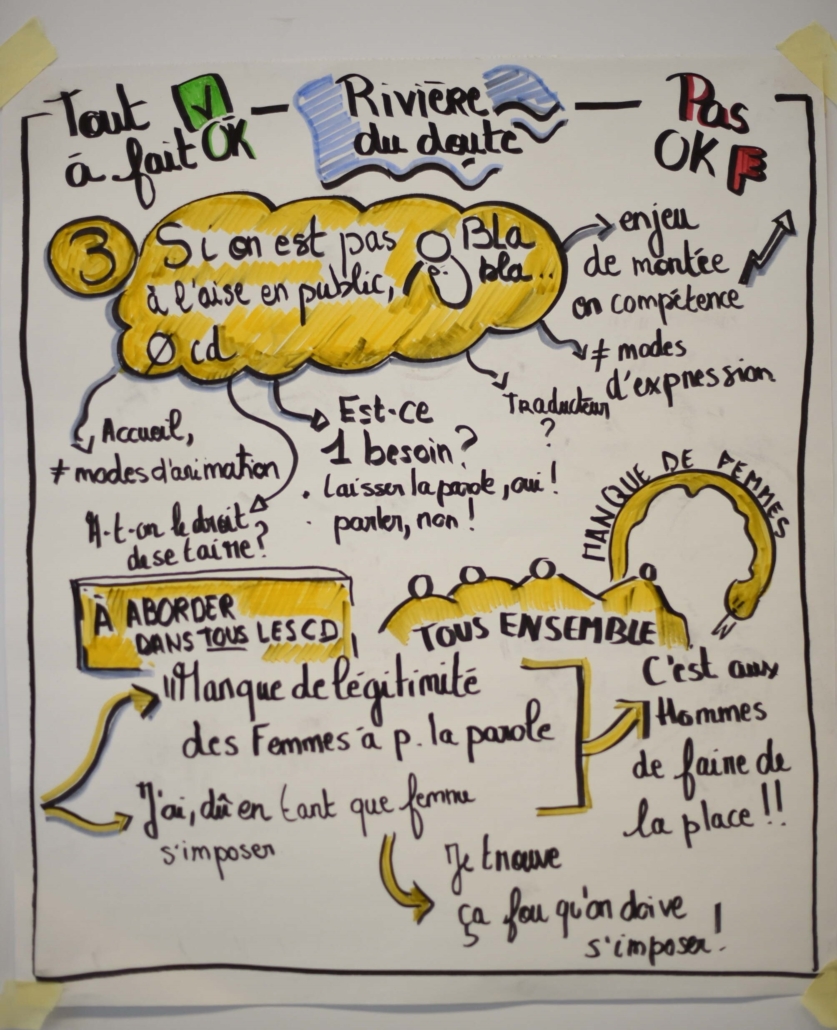 Tout
à fait OK
Rivière
du doute
Pas
OK
3
Si on est pas
à l'aise en public,
Ø cd
Bla
bla...
enjeu
de montée
en compétence
≠ modes
d'expression
Traducteur
?
Accueil,
≠ modes d'animation
Est-ce
1 besoin ?
. Laisser la parole, oui !
. parler, non !
A-t-on le droit
de se taire ?
MANQUE DE FEMMES
À ABORDER
DANS TOUS LES CD
TOUS ENSEMBLE
"Manque de légitimité
des Femmes à p. la parole
J'ai, dû en tant que femme
s'imposer
C'est aux
Hommes
de faire de
la place !!
Je trouve
ça fou qu'on doive
s'imposer !